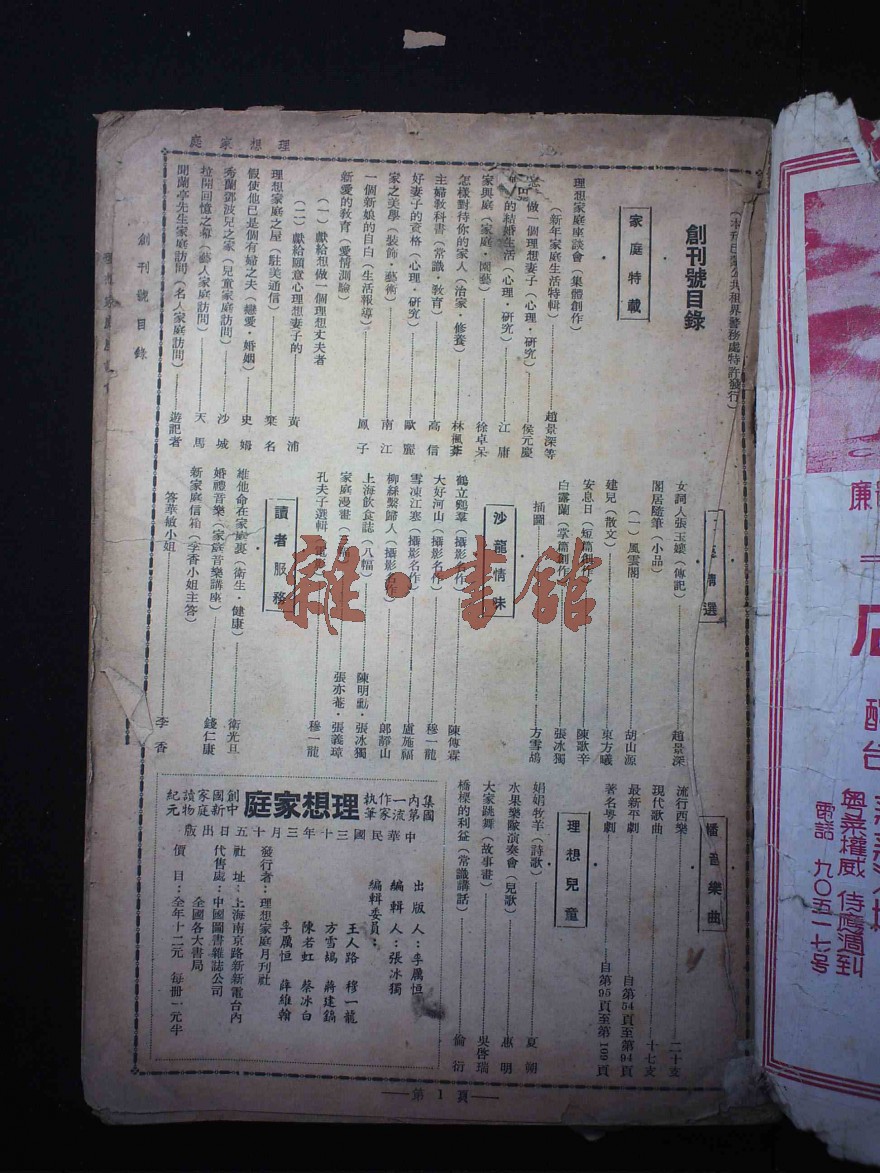 理想家庭
創刊號目錄
創刊號目錄
家庭特載
理想家庭座談會（集體創作）趙景深等
（新年家庭生活特輯）
做一個理想妻子（心理・研究）侯元慶
的結婚生活（心理・研究）江庸
家與庭（家庭・園藝）徐卓呆
怎樣對待你的家人（治家・修養）林楓
主婦教科書（常識・教育）高信
好妻子的資格（心理・研究）歐麗
家之美學（裝飾・藝術）南江
一個新娘的自白（生活報導）鳳子
新愛的教育（愛情測論）
（一）獻給想做一個理想丈夫者 黃浦
（二）獻給願意心理想妻子的 栗名
理想家庭之屋（駐美通信）史姆
假使他已是個有婦之夫（戀愛・婚姻）沙城
秀蘭鄧波兒之家（兒童家庭訪問）天馬
拉開回憶之幕（藝人家庭訪問）
聞蘭亭先生家庭訪問（名人家庭訪問）遊記者
精選
女詞人張玉孃（傳記）趙景深
閣居隨筆（小品）
（一）風雲閣 胡山源
建兒（散文）東方曦
安息日（短篇創作）陳歌辛
白露蘭（掌篇創作）張冰獨
插圖 方雪鴣
沙龍情味
鶴立鷄羣（攝影名作）陳傳霖
大好河山（攝影名作）穆一龍
雪凍江寒（攝影名作）盧施福
柳絲繫歸人（攝影名作）郎靜山
上海飲食誌（八幅）陳明勳・張冰獨
家庭漫畫 張亦菴・張義璋
孔夫子選輯 穆一龍
讀者服務
維他命在家庭裏（衛生・健康）衛光旦
婚禮音樂（家庭音樂講座）錢仁康
新家庭信箱（李香小姐主答）
答華敏小姐 李香
播音樂曲
流行西樂 二十支
現代歌曲 十七支
最新平劇 自第54頁至第94頁
著名粵劇 自第95頁至第109頁
理想兒童
娟娟牧羊（詩歌）夏朔
水果樂隊演奏會（兒歌）惠明
大家跳舞（故事畫）吳啓瑞
橋樑的利益（常識講話）倫衍
集國內第一流作家執筆
理想家庭
創中國新家庭讀物紀元
中華民國三十年三月十五日出版
出版人：李厲恒
編輯人：張冰獨
編輯委員：
王人路 穆一龍
方雪鴣 蔣建鎬
陳若虹 蔡冰白
李厲恒 薛維翰
發行者：理想家庭月刊社
社址：上海南京路新新電台內
代售處：中國圖書雜誌公司
全國各大書局
價目：全年十二元 每冊一元半
第1頁
雜・書館
廉
粵菜權威 侍應週到
電話 九〇五一七號